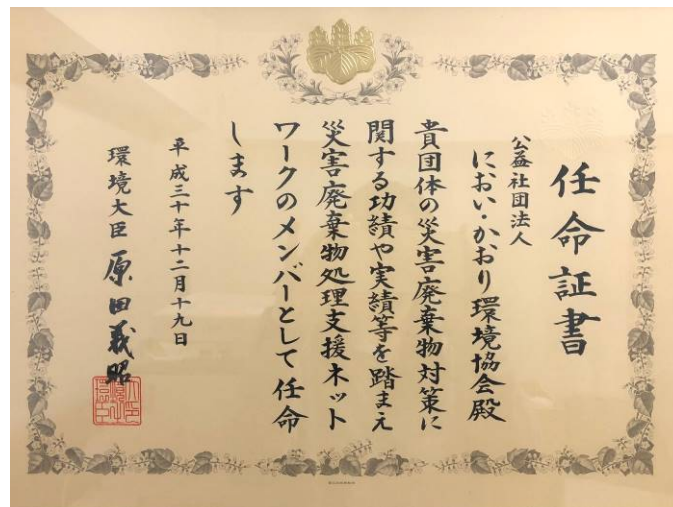 任命証書
公益社団法人
におい・かおり環境協会殿
貴団体の災害廃棄物対策に
関する功績や実績等を踏まえ
災害廃棄物処理支援ネット
ワークのメンバーとして任命
します
平成三十年十二月十九日
環境大臣 原田義昭